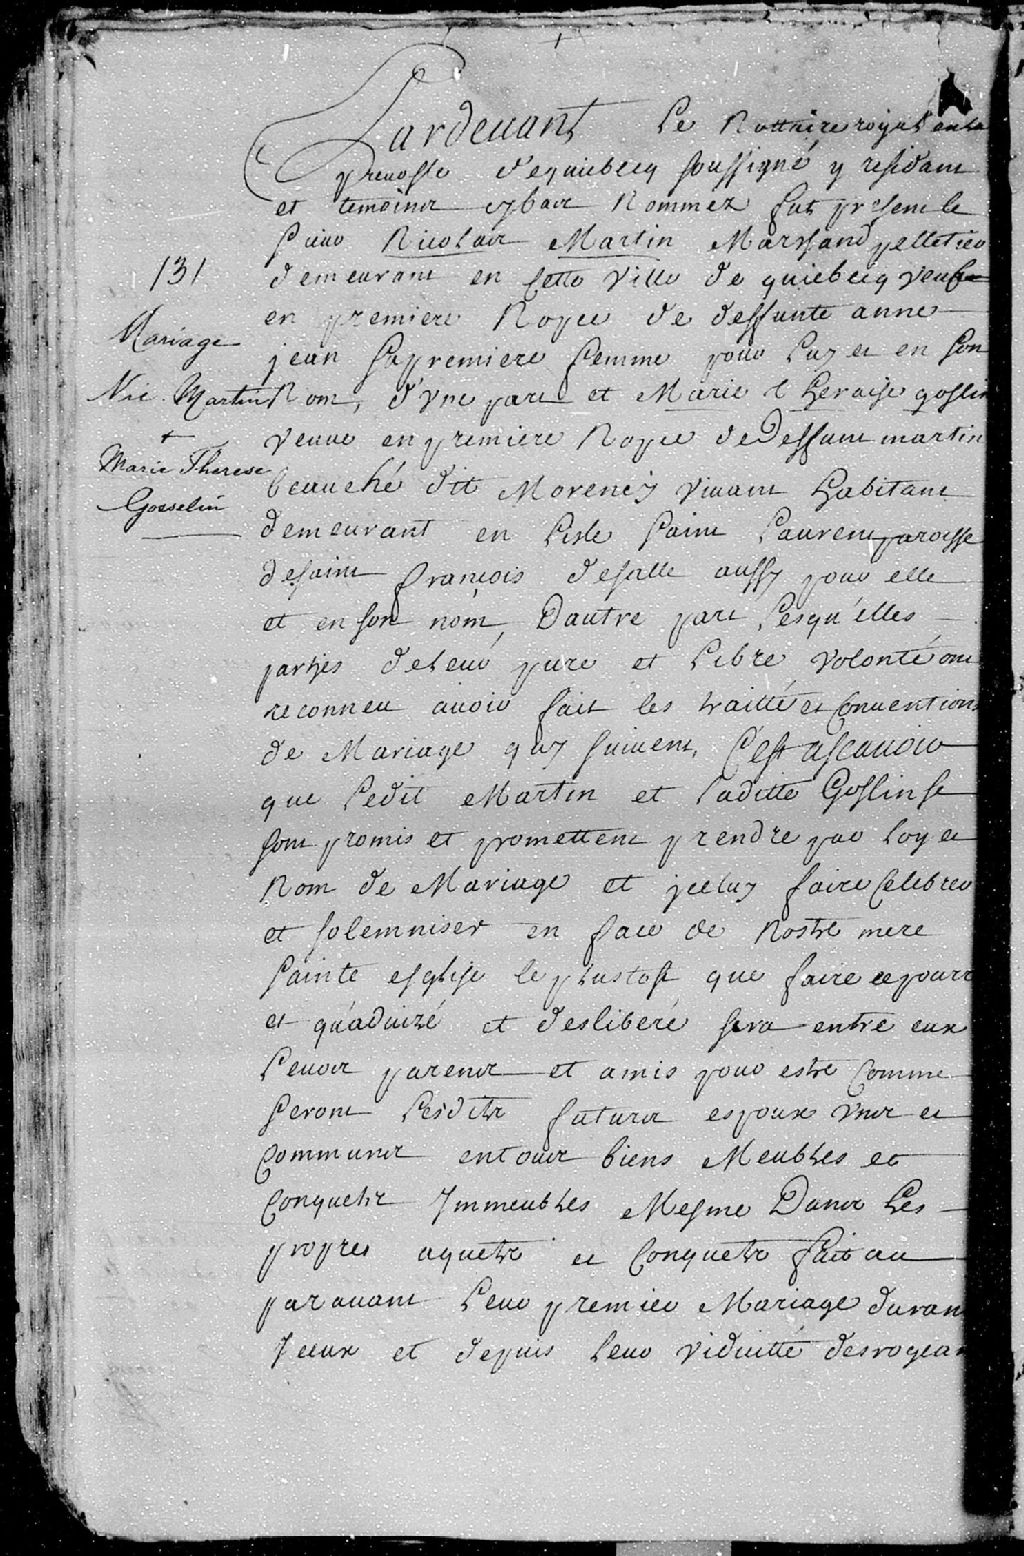 Pardeuant Le Nottaire royal en la
preuosté dequiebecq soussigné y residant
et temoins cybas Nommez fut present le
sieur Nicolas Martin Marchand pelletier
131
demeurant en cette ville de quiebecq veuf
en premiere Nopce de deffunte anne
Mariage
jean sa premiere femme pour luy et en son
Nic. Martin
Nom, d'vne part et Marie theraise goslin
veuue en premiere Nopce de Deffunt martin
+
Marie Therese
beauché dit Morency viuant habitant
Gosselin
demeurant en Lisle saint Laurent paroisse
desaint françois desalle aussy pour elle
et en son nom, Dautre part, Lesqu'elles
partyes deleur pure et Libre volonté ont
reconneu auoir fait les traitté et Conuentions
de Mariage quy suiuent, C'est ascauoir
que Ledit Martin et Laditte Goslin se
sont promis et promettent prendre par Loy et
Nom de Mariage et jceluy faire Celebrer
et solemniser en face de Nostre mere
sainte esglise le plustost que faire ce pourra
et qu'aduizé et deslibéré sera entre eux
Leurs parens et amis pour estre Comme
seront Lesdits futurs espoux vns et
Communs entous biens Meubles et
Conquets Jmmeubles Mesme Dans Les
propres aquets et Conquets fait au
parauant Leur premier Mariage durant
Jceux et depuis leur viduitté desrogeant